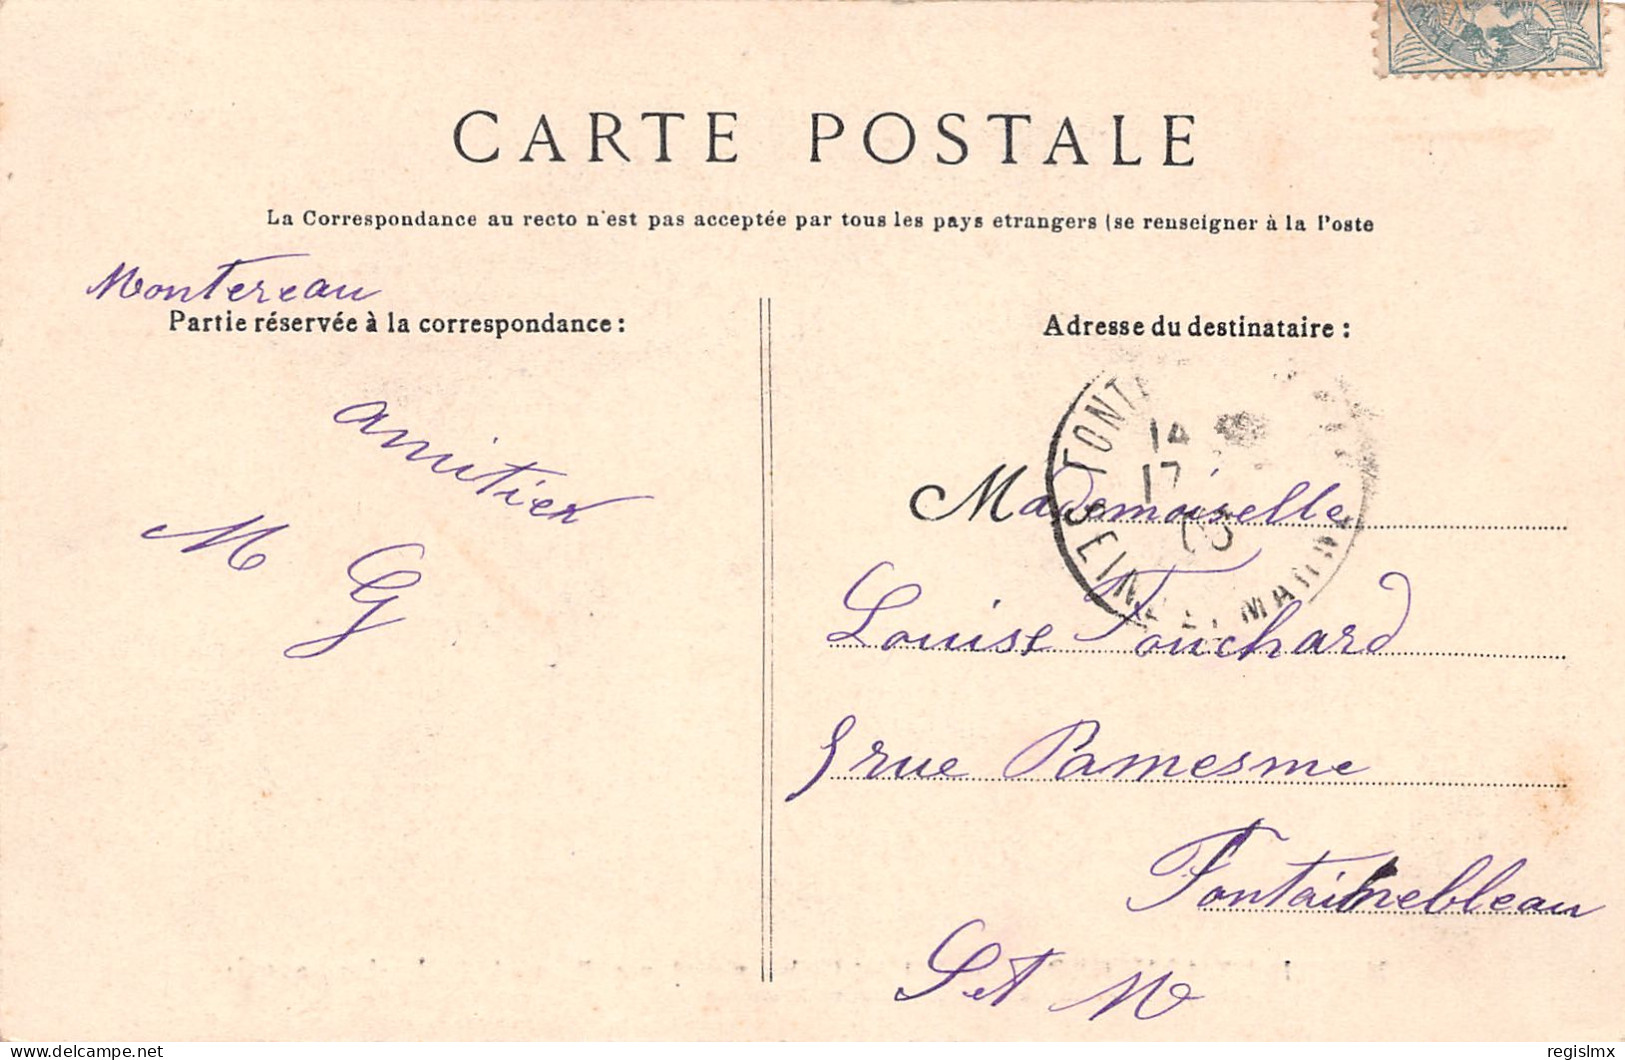 CARTE POSTALE
La Correspondance au recto n'est pas acceptée par tous les pays etrangers (se renseigner à la Poste
Montereau
Partie réservée à la correspondance :
amitier
M G
Adresse du destinataire :
14
17
03
SEINE ET MARNE
Mademoiselle
Louise Touchard
5 rue Damesme
Fontainebleau
S et M
www.delcampe.net
regislmx